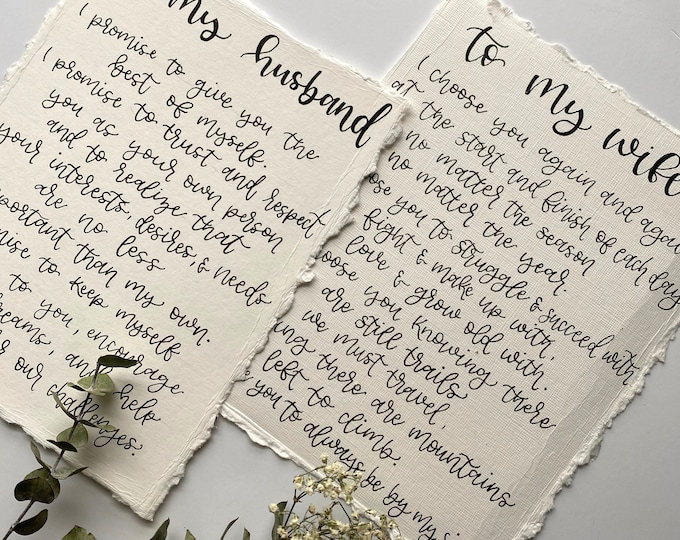 my husband
I promise to give you the
best of myself.
I promise to trust and respect
you as your own person
and to realize that
your interests, desires, & needs
are no less
important than my own.
to keep myself
to you, encourage
and help
our challenges.
to my wife
I choose you again and again
at the start and finish of each day
no matter the season
no matter the year.
you to struggle & succeed with
fight & make up with,
love & grow old with.
you knowing there
are still trails
we must travel,
there are mountains
left to climb.
you to always be by my